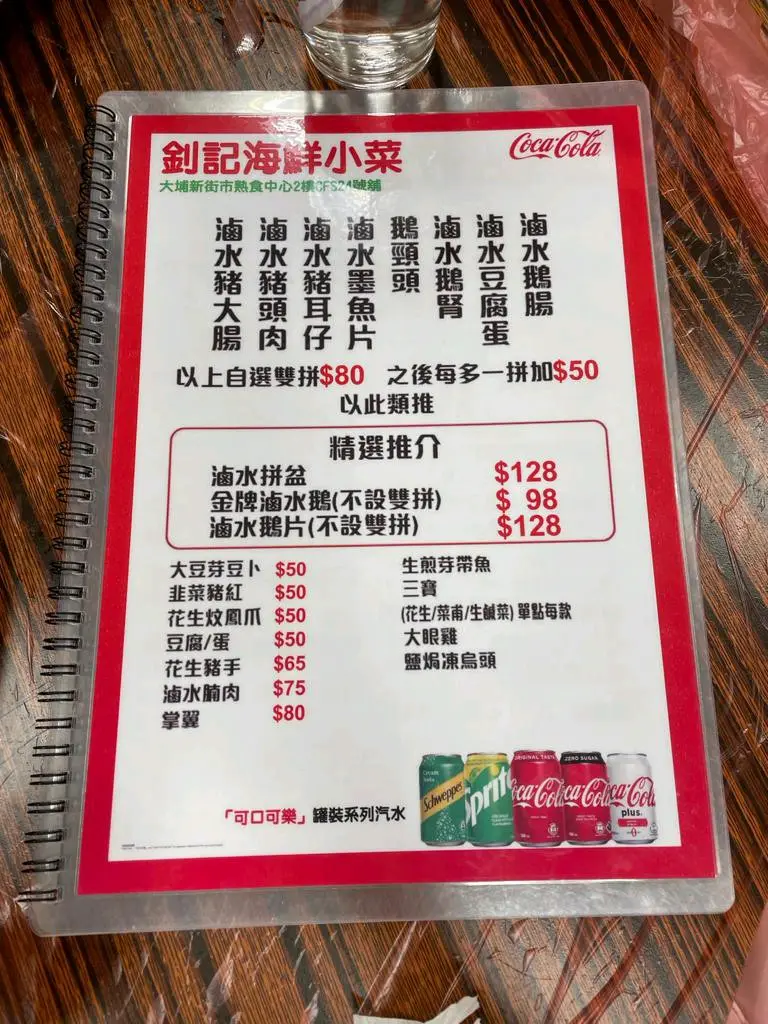 釗記海鮮小菜
Coca-Cola
大埔新街市熟食中心2樓CFS24號舖
滷水鵝腸
滷水豆腐蛋
滷水鵝腎
鵝頸頭
滷水墨魚片
滷水豬耳仔
滷水豬頭肉
滷水豬大腸
以上自選雙拼$80 之後每多一拼加$50
以此類推
精選推介
滷水拼盆 $128
金牌滷水鵝(不設雙拼) $ 98
滷水鵝片(不設雙拼) $128
大豆芽豆卜 $50
韭菜豬紅 $50
花生炆鳳爪 $50
豆腐/蛋 $50
花生豬手 $65
滷水腩肉 $75
掌翼 $80
生煎芽帶魚
三寶
(花生/菜甫/生鹹菜) 單點每款
大眼雞
鹽焗凍烏頭
「可口可樂」罐裝系列汽水
Cream Soda
Schweppes
Sprite
ORIGINAL TASTE
Coca-Cola
ZERO SUGAR
Coca-Cola
Coca-Cola
plus